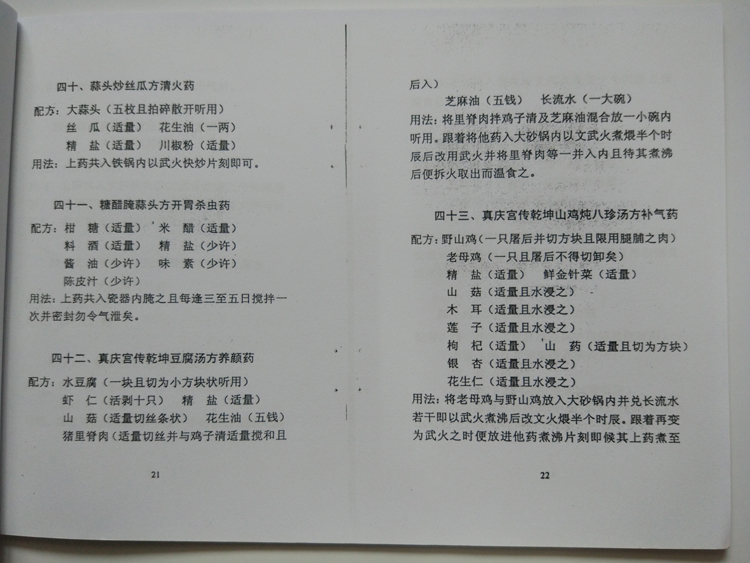 四十、蒜头炒丝瓜方清火药
配方：大蒜头（五枚且拍碎散开听用）
丝　瓜（适量）　花生油（一两）
精　盐（适量）　川椒粉（适量）
用法：上药共入铁锅内以武火快炒片刻即可。
四十一、糖醋腌蒜头方开胃杀虫药
配方：柑　糖（适量）　米　醋（适量）
料　酒（适量）　精　盐（少许）
酱　油（少许）　味　素（少许）
陈皮汁（少许）
用法：上药共入瓷器内腌之且每逢三至五日搅拌一
次并密封勿令气泄矣。
四十二、真庆宫传乾坤豆腐汤方养颜药
配方：水豆腐（一块且切为小方块状听用）
虾　仁（活剥十只）　精　盐（适量）
山　菇（适量切丝条状）　花生油（五钱）
猪里脊肉（适量切丝并与鸡子清适量搅和且
21
后入）
芝麻油（五钱）　长流水（一大碗）
用法：将里脊肉拌鸡子清及芝麻油混合放一小碗内
听用。跟着将他药入大砂锅内以文武火煮煨半个时
辰后改用武火并将里脊肉等一并入内且待其煮沸
后便拆火取出而温食之。
四十三、真庆宫传乾坤山鸡炖八珍汤方补气药
配方：野山鸡（一只屠后并切方块且限用腿脯之肉）
老母鸡（一只且屠后不得切卸矣）
精　盐（适量）　鲜金针菜（适量）
山　菇（适量且水浸之）
木　耳（适量且水浸之）
莲　子（适量且水浸之）
枸　杞（适量）　山　药（适量且切为方块）
银　杏（适量且水浸之）
花生仁（适量且水浸之）
用法：将老母鸡与野山鸡放入大砂锅内并兑长流水
若干即以武火煮沸后改文火煨半个时辰。跟着再变
为武火之时便放进他药煮沸片刻即候其上药煮至
22